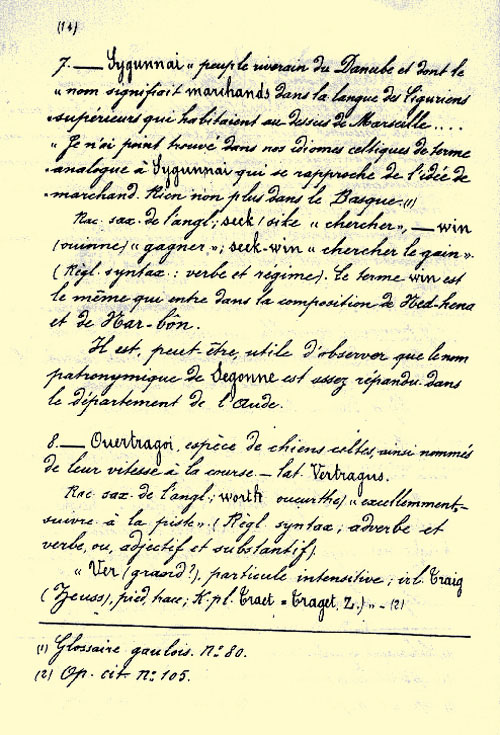 (14)
7. — Sygunnai « peuple riverain du Danube et dont le
« nom signifiait marchands dans la langue des Liguriens
« supérieurs qui habitaient au dessus de Marseille....
« Je n'ai point trouvé dans nos idiomes celtiques de terme
« analogue à Sygunnai qui se rapproche de l'idée de
« marchand. Rien non plus dans le Basque. (1)
Rac. sax. de l'angl; seek (sike « chercher », — win
(ouinne) « gagner »; seek-win « chercher le gain ».
(Règl. syntax.: verbe et régime). Le terme win est
le même qui entre dans la composition de Hed-hena
et de Nar-bôn.
Il est, peut être, utile d'observer que le nom
patronymique de Segonne est assez répandu dans
le département de l'Aude.
8. — Ouertragoi, espèce de chiens celtes, ainsi nommés
de leur vitesse à la course. — lat. Vertragus.
Rac. sax. de l'angl; worth oueurthe) « excellemment, —
suivre à la piste ». (Règl. syntax; adverbe et
verbe, ou, adjectif et substantif).
« Ver (grand?), particule intensitive; irl. Traig
(Zeuss), pied, trace; K. pl. Traet = Traget, Z.) » — (2)
(1) Glossaire gaulois. N° 80.
(2) Op. cit. N° 105.